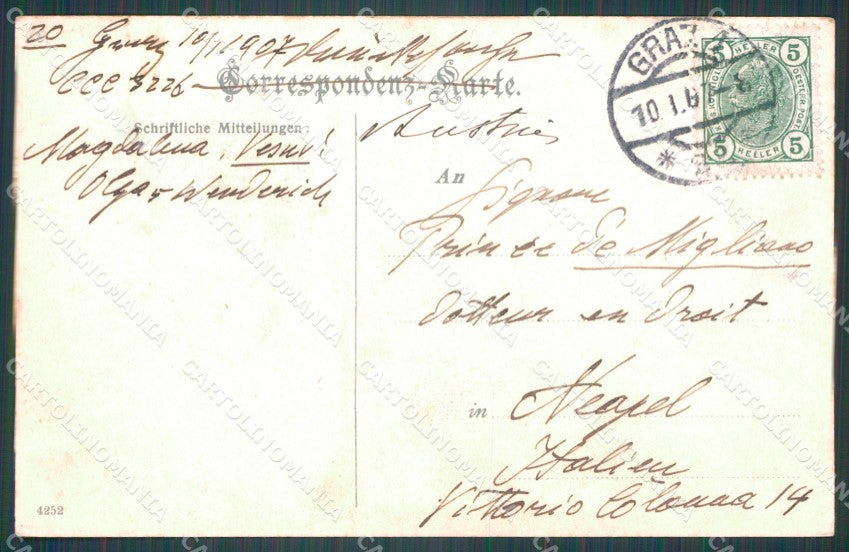 20 Graz 10/1 1907
CCC 3226
Correspondenz-Karte.
Schriftliche Mitteilungen
Magdalena, Vesuv!
Olga Wenderich
4252
Austria
An
Signore
Prince de Migliano
dotteur en droit
in Neapel
Italien
Vittorio Colonna 14
GRAZ
10.I.0
5 HELLER 5
5 HELLER 5
CARTOLINOMANIA